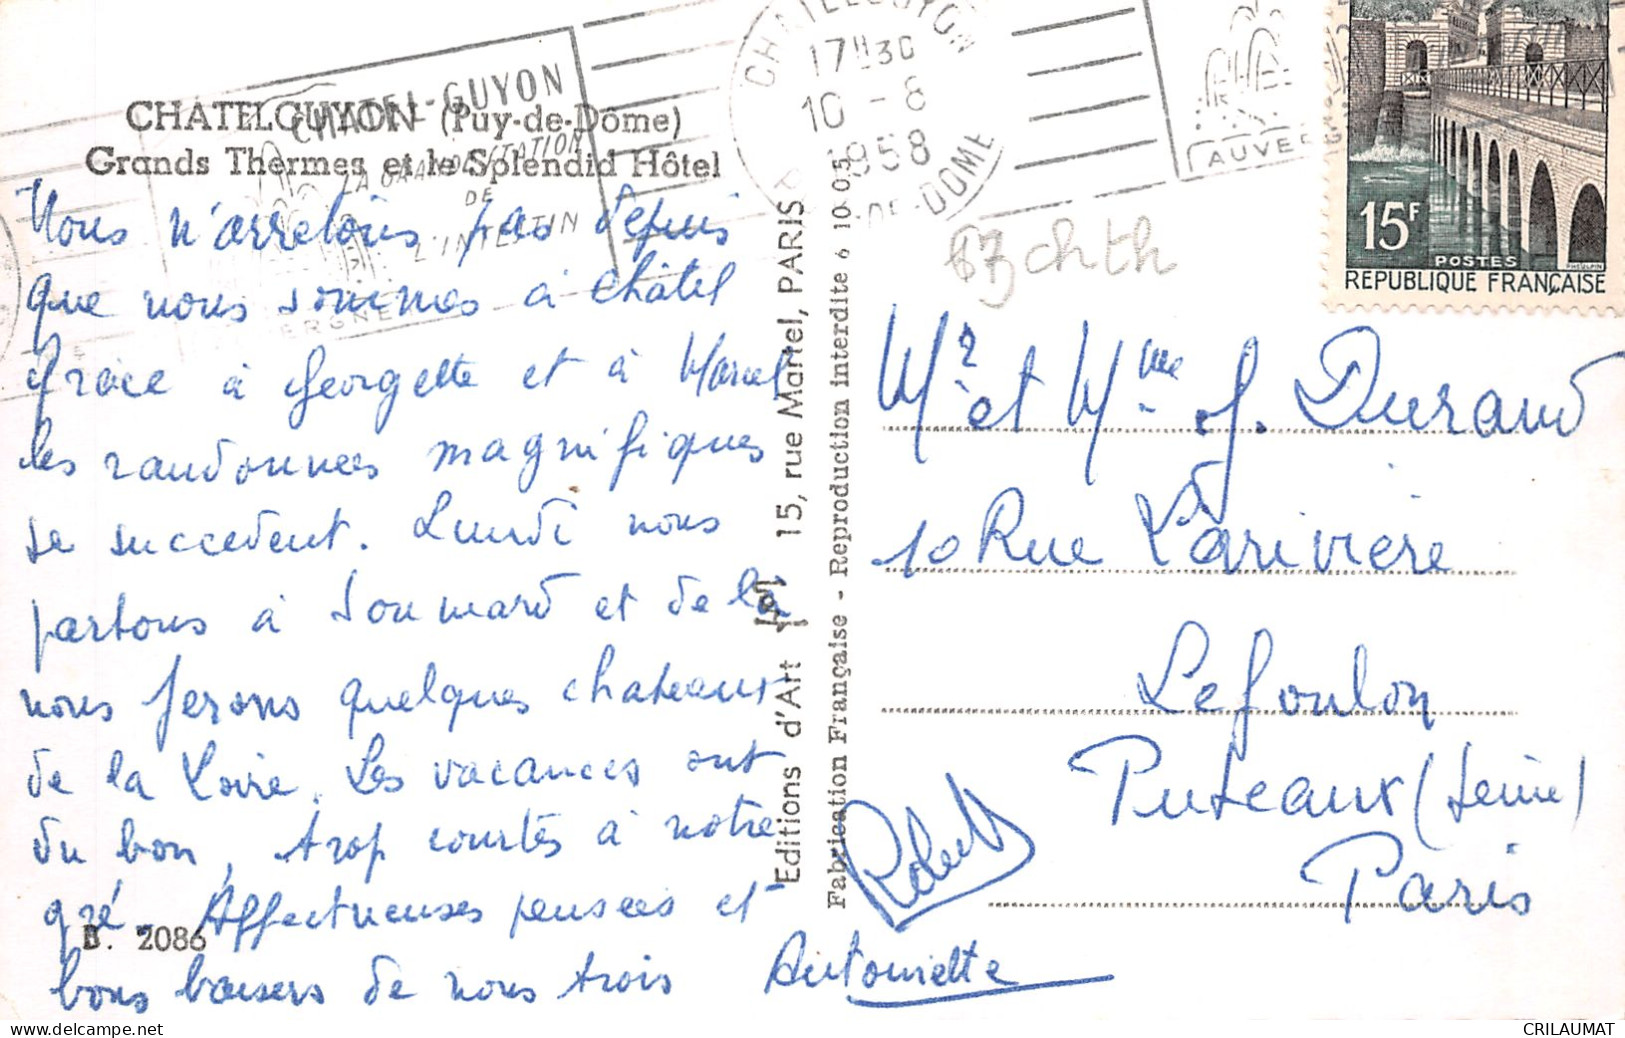 CHATELGUYON (Puy-de-Dôme)
Grands Thermes et le Splendid Hôtel
CHATEL-GUYON
LA GRANDE STATION
DE
L'INTESTIN
CHATELGUYON
17H30
10 - 8
1958
DE-DOME
AUVERG
15F
POSTES
REPUBLIQUE FRANÇAISE
67 ch th
Nous n'arretons pas depuis
que nous sommes à Châtel
Grâce à Georgette et à Marcel
les randonnées magnifiques
se succedent. Lundi nous
partons à Soumard et de là
nous ferons quelques chateaux
de la Loire. Les vacances ont
du bon, trop courtes à notre
gré. Affectueuses pensees et
bons baisers de nous trois
Antoinette
Robert
B. 2086
Editions d'Art 15, rue Martel, PARIS
Fabrication Française - Reproduction interdite 6 10 05 5
Mr et Mme J. Durand
10 Rue Lariviere
Lefoulon
Puteaux (Seine)
Paris
CRILAUMAT